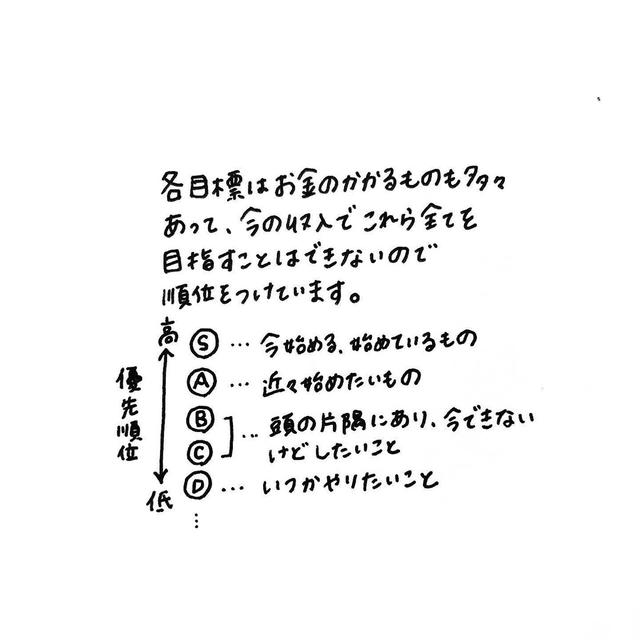 各目標はお金のかかるものも多々
あって、今の収入でこれら全てを
目指すことはできないので
順位をつけています。
高
優先順位
低
Ⓢ … 今始める、始めているもの
Ⓐ … 近々始めたいもの
Ⓑ
Ⓒ
… 頭の片隅にあり、今できない
けどしたいこと
Ⓓ … いつかやりたいこと
⋮